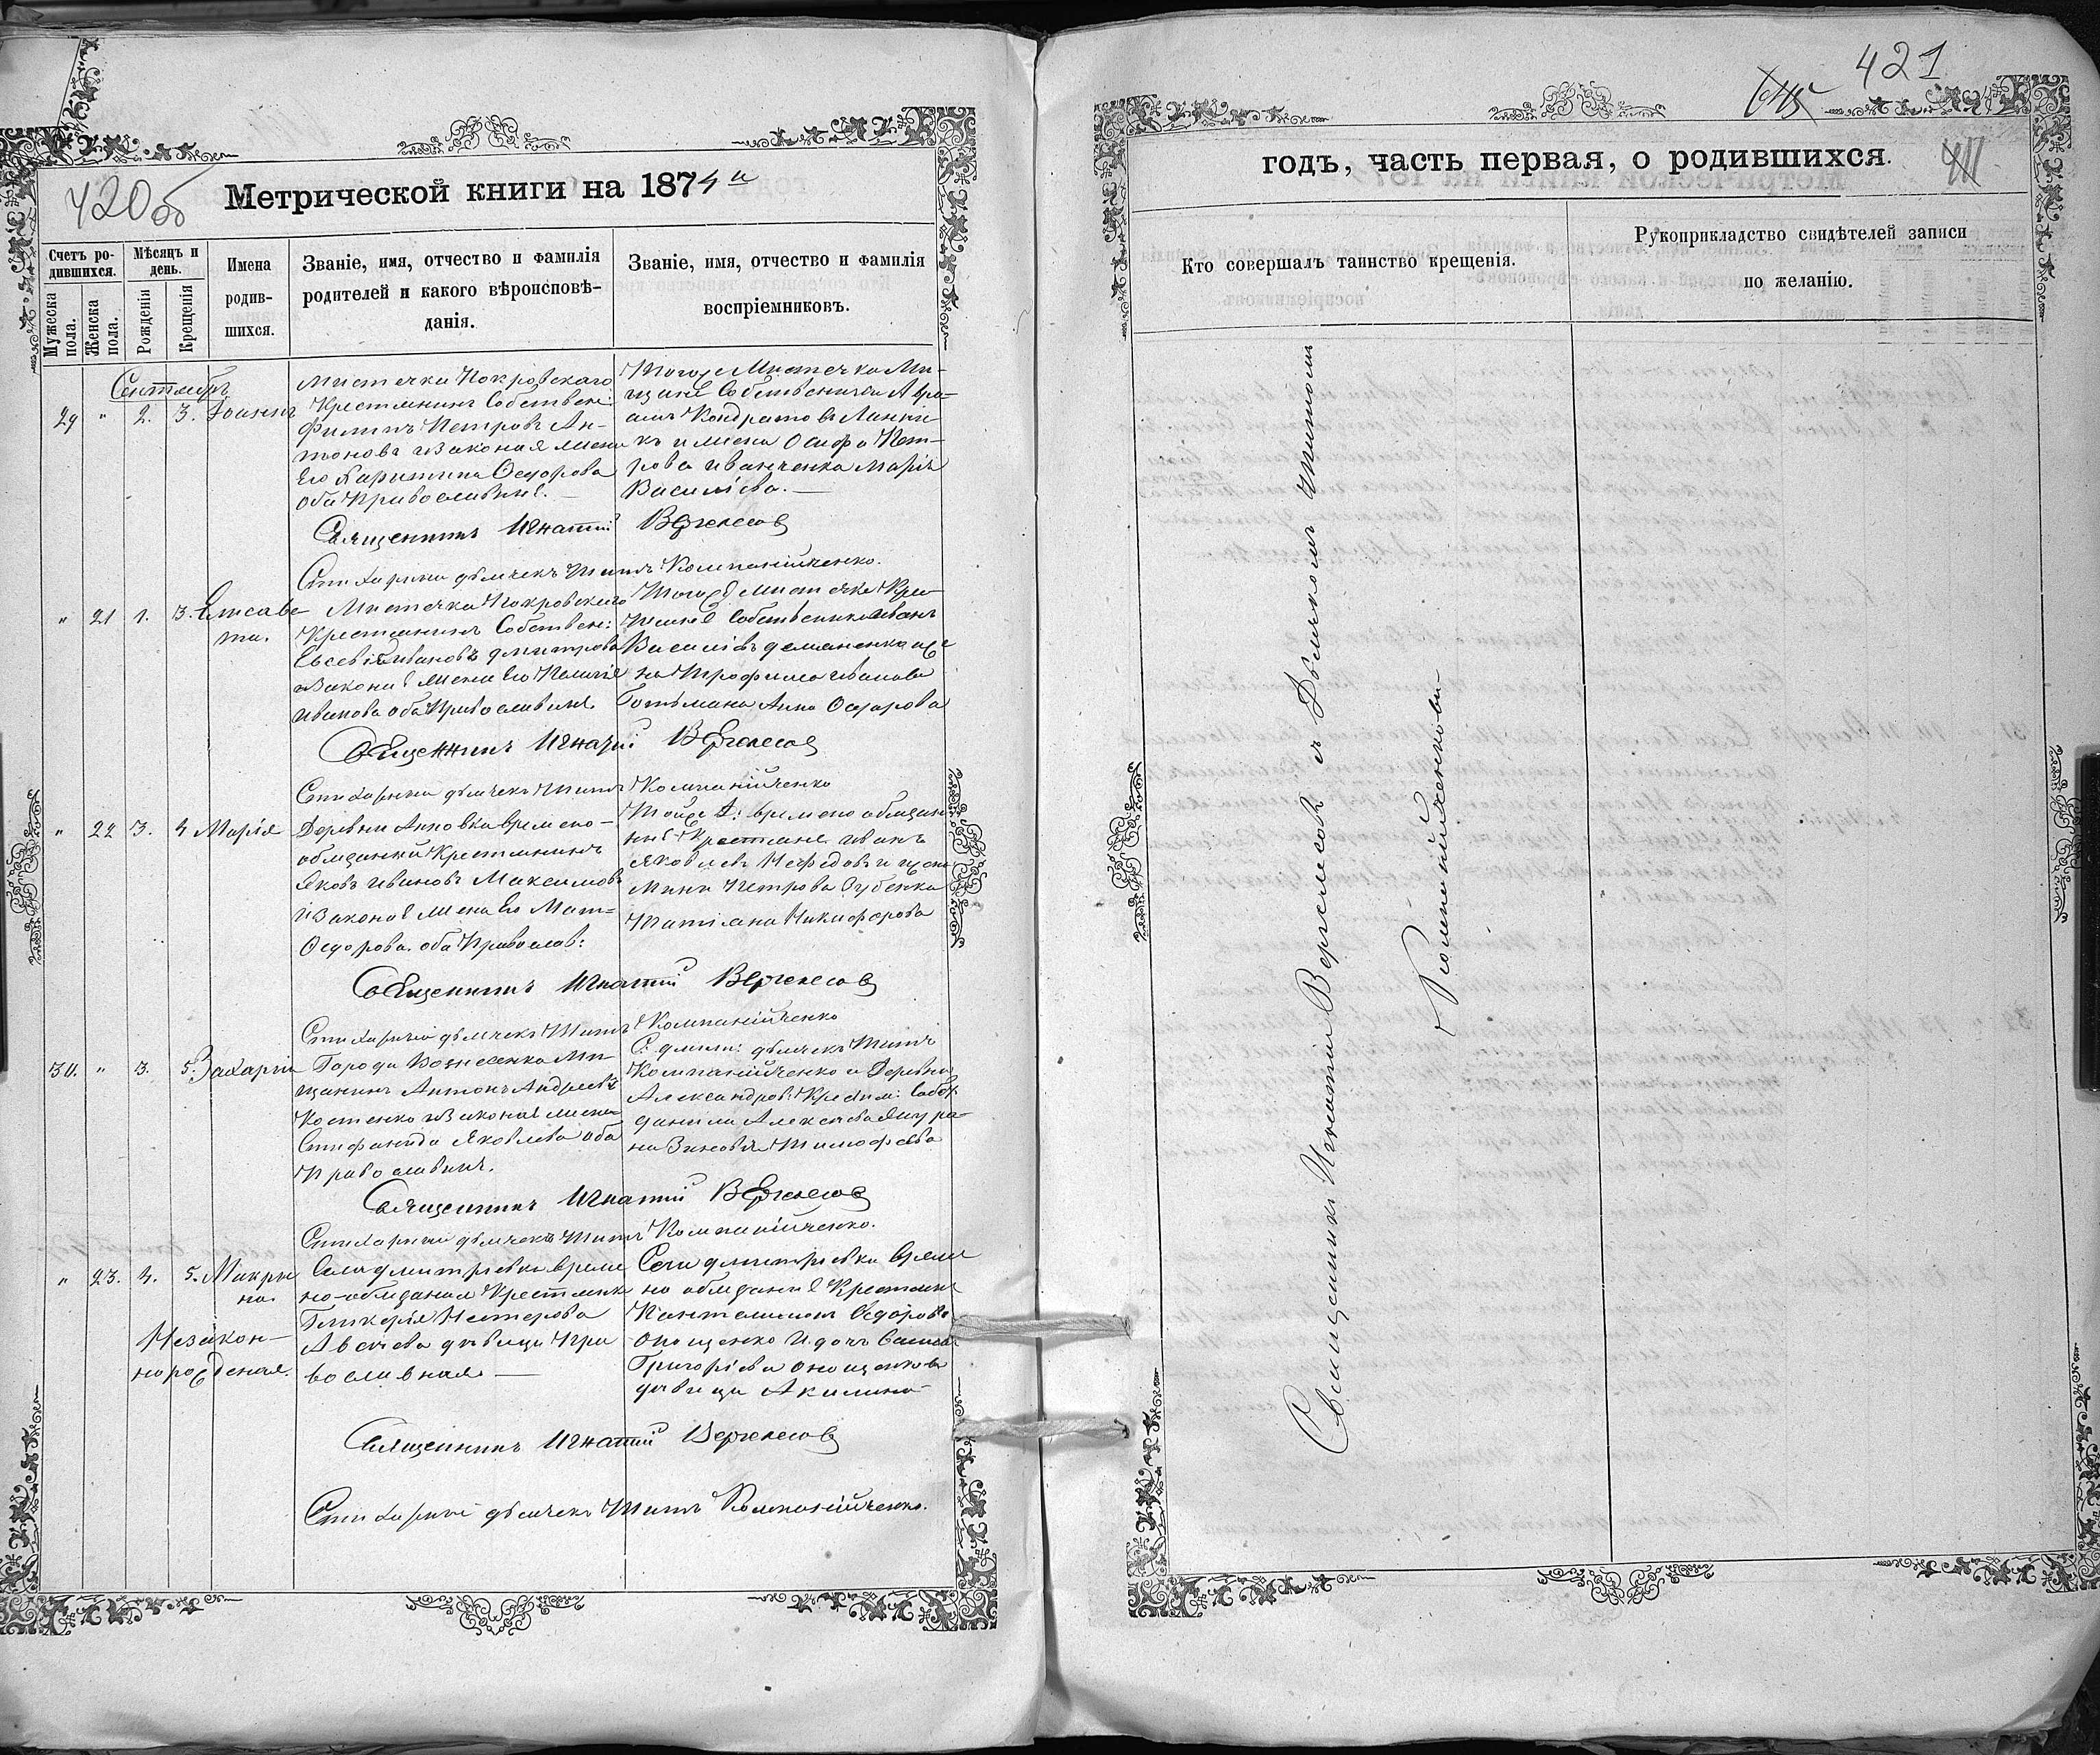 420об
Метрической книги на 1874й
Счетъ ро-
дившихся.
Мѣсяцъ и
день.
Мужеска
пола.
Женска
пола.
Рожденія
Крещенія
Имена
родив-
шихся.
Званіе, имя, отчество и фамилія
родителей и какого вѣроисповѣ-
данія.
Званіе, имя, отчество и фамилія
воспріемниковъ.
Сентябрь
29 " 2. 3. Іоаннъ
Мистечка Покровскаго
Крестянинъ Собствен:
Филипъ Петровъ Ан-
тоновъ и законая жена
Его Харитина Федорова
оба православные.
Тогоже Мистечка
Кондратовъ
и жена Осифа Пет-
рова Иванченка Марія
Василіева.
Священникъ Игнатій Вержелесовъ
Стихарный дьячекъ Титъ Компанійченко.
" 21 1. 3. Елисаве-
та.
Мистечка Покровскаго
Крестянинъ Собствен:
Евсевій Ивановъ Дмитрова
и Закона жена Его
Иванова оба Православные
Тогоже Мистечка Кре-
Собственики Иванъ
Василіевъ
на Трофима Иванова
Анна Федорова
Священникъ Игнатій Вержелесовъ
Стихарный дьячекъ Титъ Компанійченко
" 22 3. 4 Марія
Деревни Анновки времено-
обязаный Крестянинъ
Яковъ Ивановъ Максимовъ
и Законая жена Его
Федорова. оба Православ:
Тойже Д: времено обязан
ные Крестяне Иванъ
Яковлевъ Нефедовъ и жена
Петрова
Татіана Никифорова
Священникъ Игнатій Вержелесовъ
Стихарный дьячекъ Титъ Компанійченко
30. " 3. 5. Захарій
Города Вознесенка Ми-
щанинъ Антонъ Андреевъ
Костенко и Законая жена
Стефанида Яковлева оба
Православные.
дьячекъ Титъ
Компанійченко и Деревни
Александров: Крестян: Собст.
Данила Алексѣева
на Зиновія Тимофѣева
Священникъ Игнатій Вержелесовъ
Стихарный дьячекъ Титъ Компанійченко.
" 23. 4. 5. Макри
на.
Незакон-
норожденая.
Села Дмитріевки време
но-обязаная Крестянка
Гликерія Нестерова
Авсѣева дѣвица Пра
вославная
Села Дмитріевки време
но обязаные Крестяне
Пантелимонъ Федоровъ
Онощенко и дочь
Григоріева Онощенкова
дѣвица Акилина
Священникъ Игнатій Вержелесовъ
Стихарный дьячекъ Титъ Компанійченко.
421
годъ, часть первая, о родившихся.
Кто совершалъ таинство крещенія.
Рукоприкладство свидѣтелей записи
по желанію.
Священникъ Игнатій Вержелесовъ съ Дьячкомъ Титомъ
Компанійченковымъ